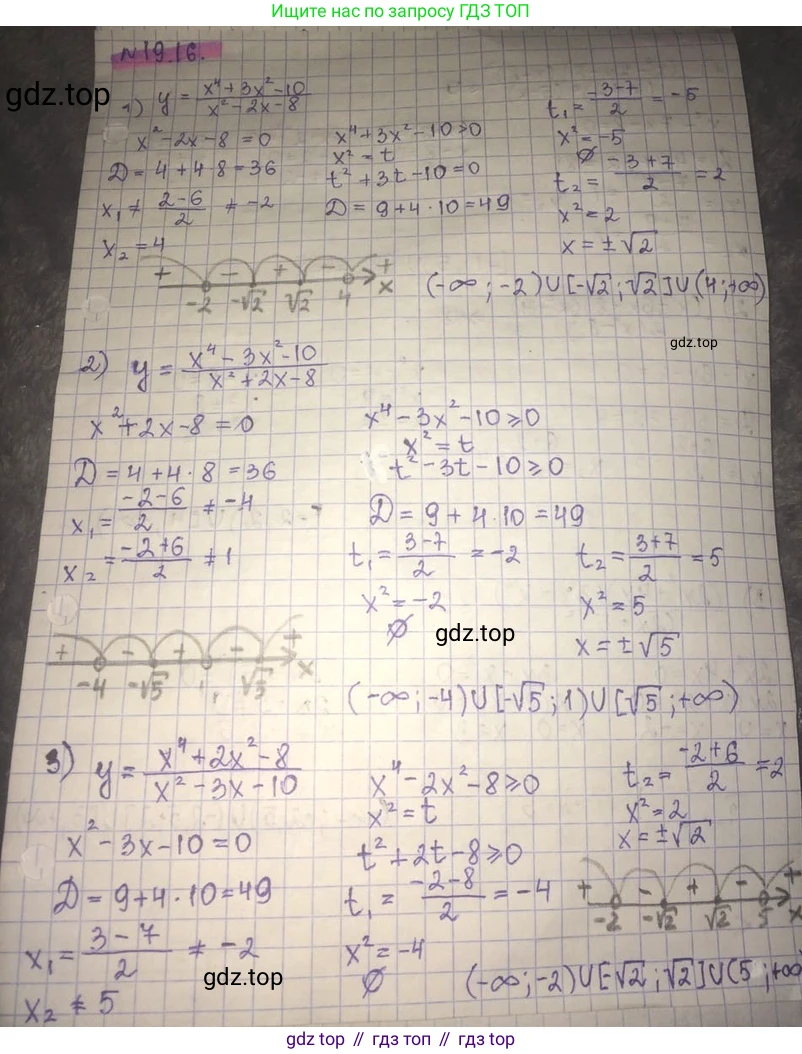 Ищите нас по запросу ГДЗ ТОП
№19.16.
gdz.top
1) y = (x⁴+3x²-10)/(x²-2x-8)
x²-2x-8=0
D=4+4·8=36
x₁ ≠ (2-6)/2 ≠ -2
x₂=4
x⁴+3x²-10≥0
x²=t
t²+3t-10=0
D=9+4·10=49
t₁=(-3-7)/2=-5
x²=-5
∅
t₂=(-3+7)/2=2
x²=2
x=±√2
+ - + - +
-2 -√2 √2 4 x
(-∞;-2)∪[-√2;√2]∪(4;+∞)
gdz.top
2) y = (x⁴-3x²-10)/(x²+2x-8)
x²+2x-8=0
D=4+4·8=36
x₁=(-2-6)/2 ≠ -4
x₂=(-2+6)/2 ≠ 1
x⁴-3x²-10≥0
x²=t
t²-3t-10≥0
D=9+4·10=49
t₁=(3-7)/2=-2
x²=-2
∅
t₂=(3+7)/2=5
x²=5
x=±√5
gdz.top
+ - + - +
-4 -√5 1 √5 x
(-∞;-4)∪[-√5;1)∪[√5;+∞)
3) y=(x⁴+2x²-8)/(x²-3x-10)
x²-3x-10=0
D=9+4·10=49
x₁=(3-7)/2 ≠ -2
x₂ ≠ 5
x⁴-2x²-8≥0
x²=t
t²+2t-8≥0
t₁=(-2-8)/2=-4
x²=-4
∅
t₂=(-2+6)/2=2
x²=2
x=±√2
+ - + - +
-2 -√2 √2 5 x
gdz.top
(-∞;-2)∪[-√2;√2]∪(5;+∞)
gdz.top // гдз топ // гдз.top